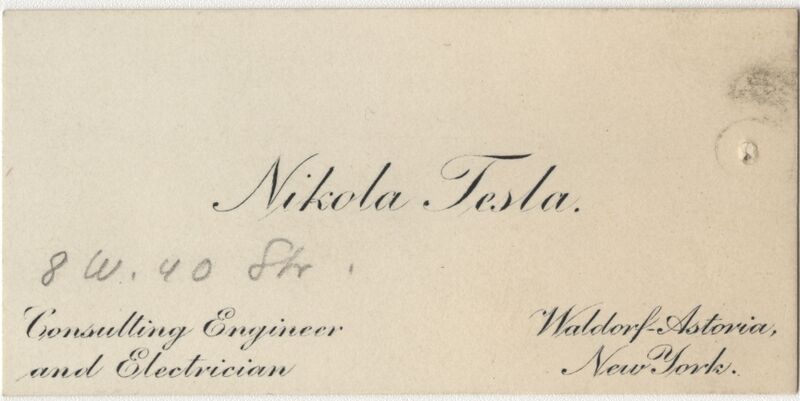 Nikola Tesla.
8 W. 40 Str.
Consulting Engineer
and Electrician
Waldorf-Astoria,
New York.